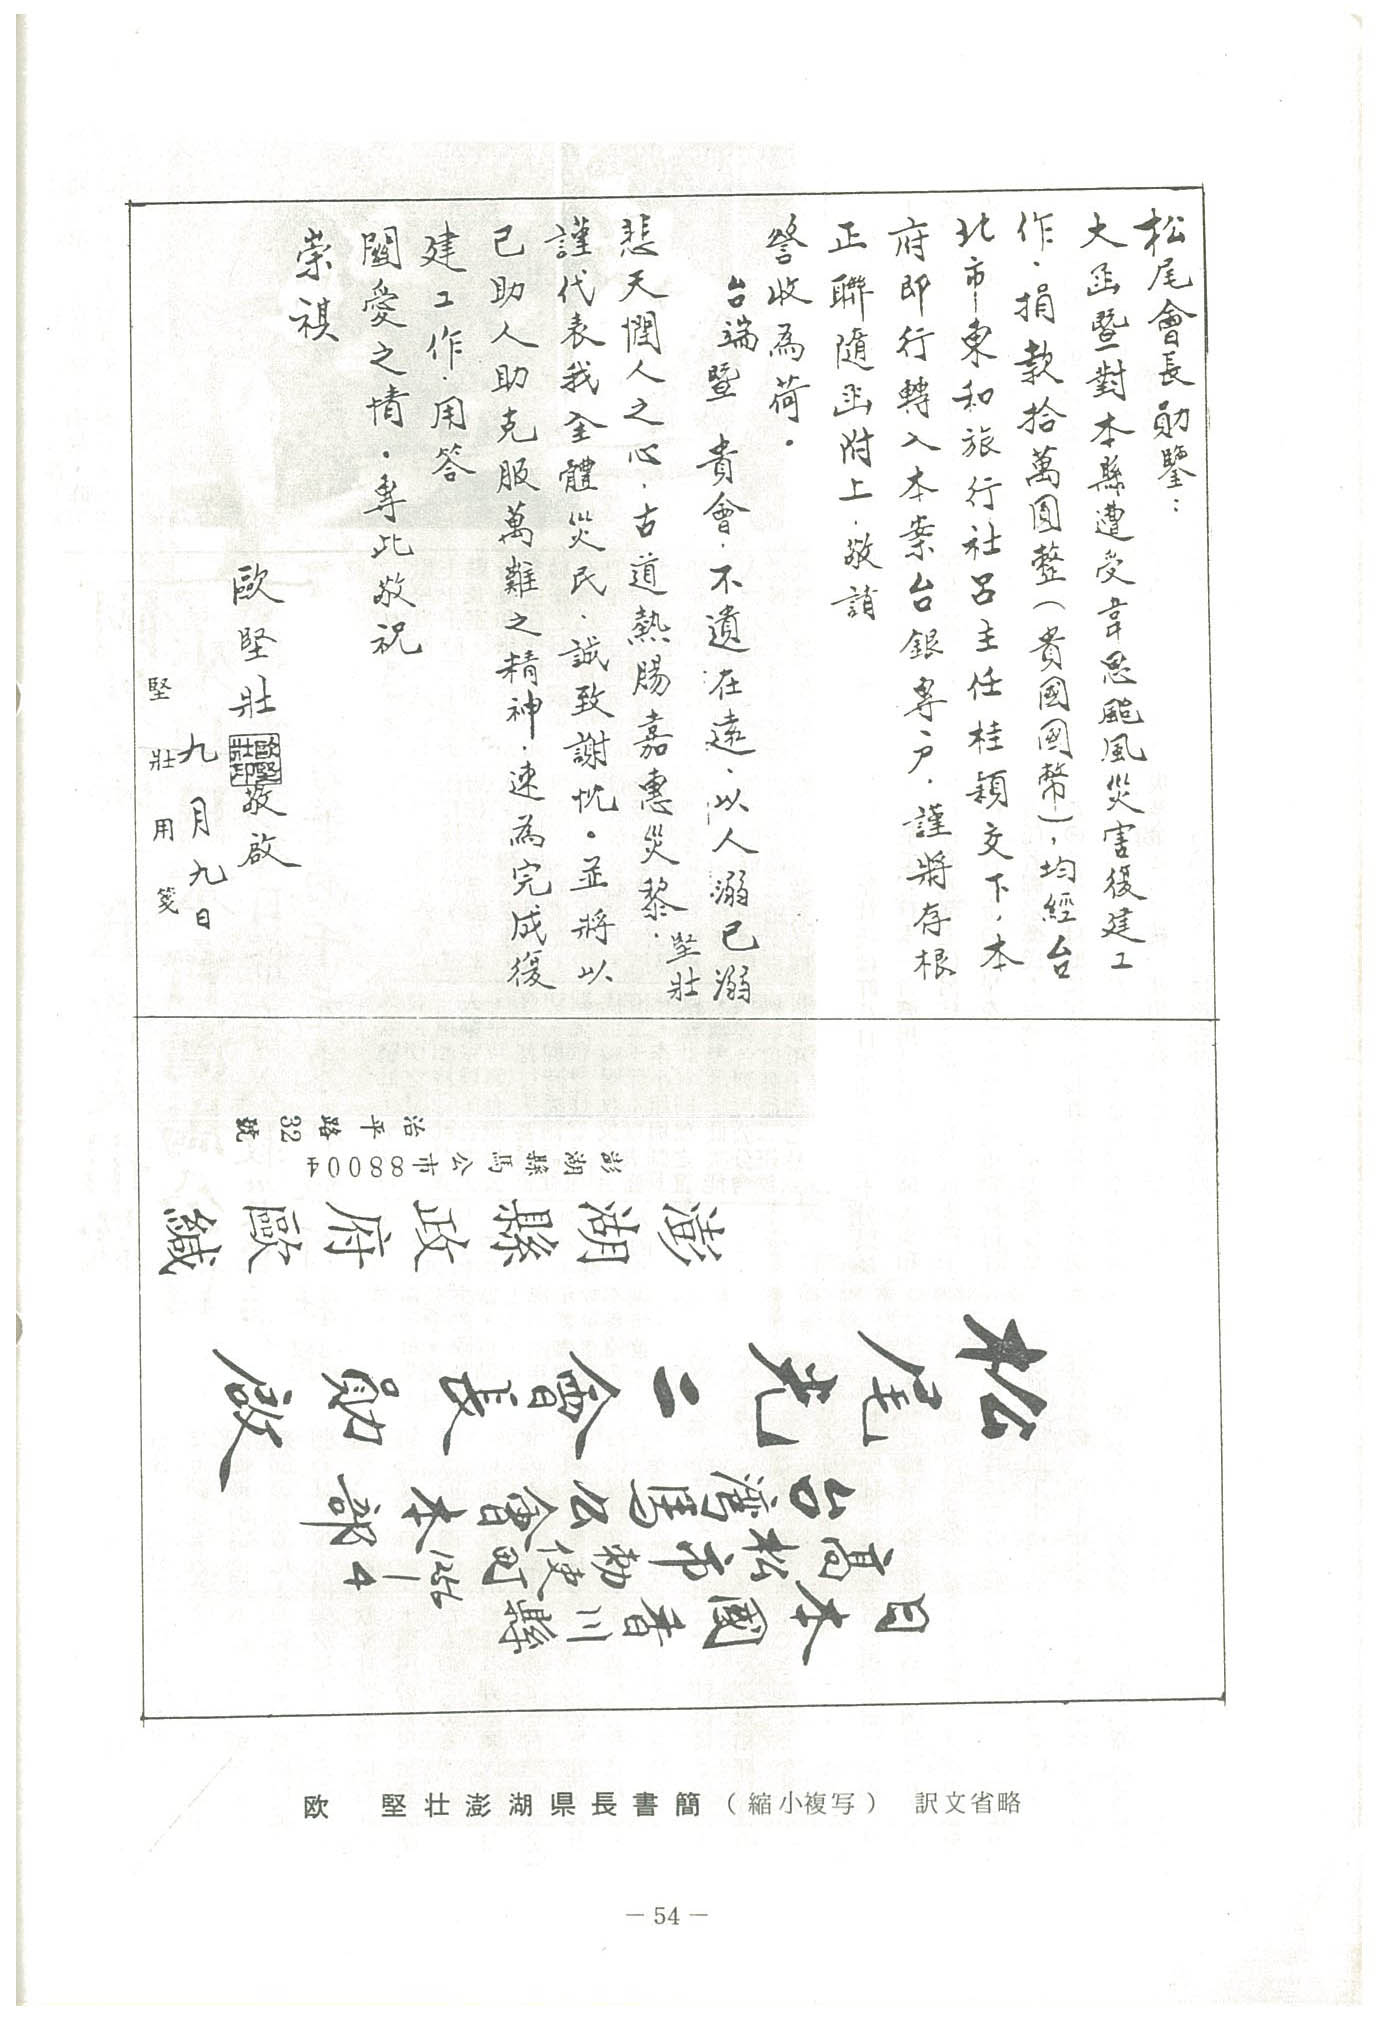 松尾會長勛鑒：
大函暨對本縣遭受韋恩颱風災害復建工
作．捐款拾萬圓整（貴國國幣），均經台
北市東和旅行社呂主任桂穎交下．本
府即行轉入本案台銀專户．謹將存根
正聯隨函附上．敬請
詧收為荷。
台端暨　貴會．不遺在遠．以人溺己溺
悲天憫人之心．古道熱腸嘉惠災黎．堅壯
謹代表我全體災民．誠致謝忱。並將以
己助人助克服萬難之精神．速為完成復
建工作．用答
關愛之情．專此敬祝
崇祺
歐堅壯 歐堅壯印 敬啟
九月九日
堅壯用箋
治平路32號
澎湖縣馬公市88004
澎湖縣政府歐緘
松尾光二會長勛啟
台灣馬公會本部
高松市勅使町1256-4
日本國香川縣
欧　堅壮澎湖県長書簡（縮小複写）　訳文省略
— 54 —